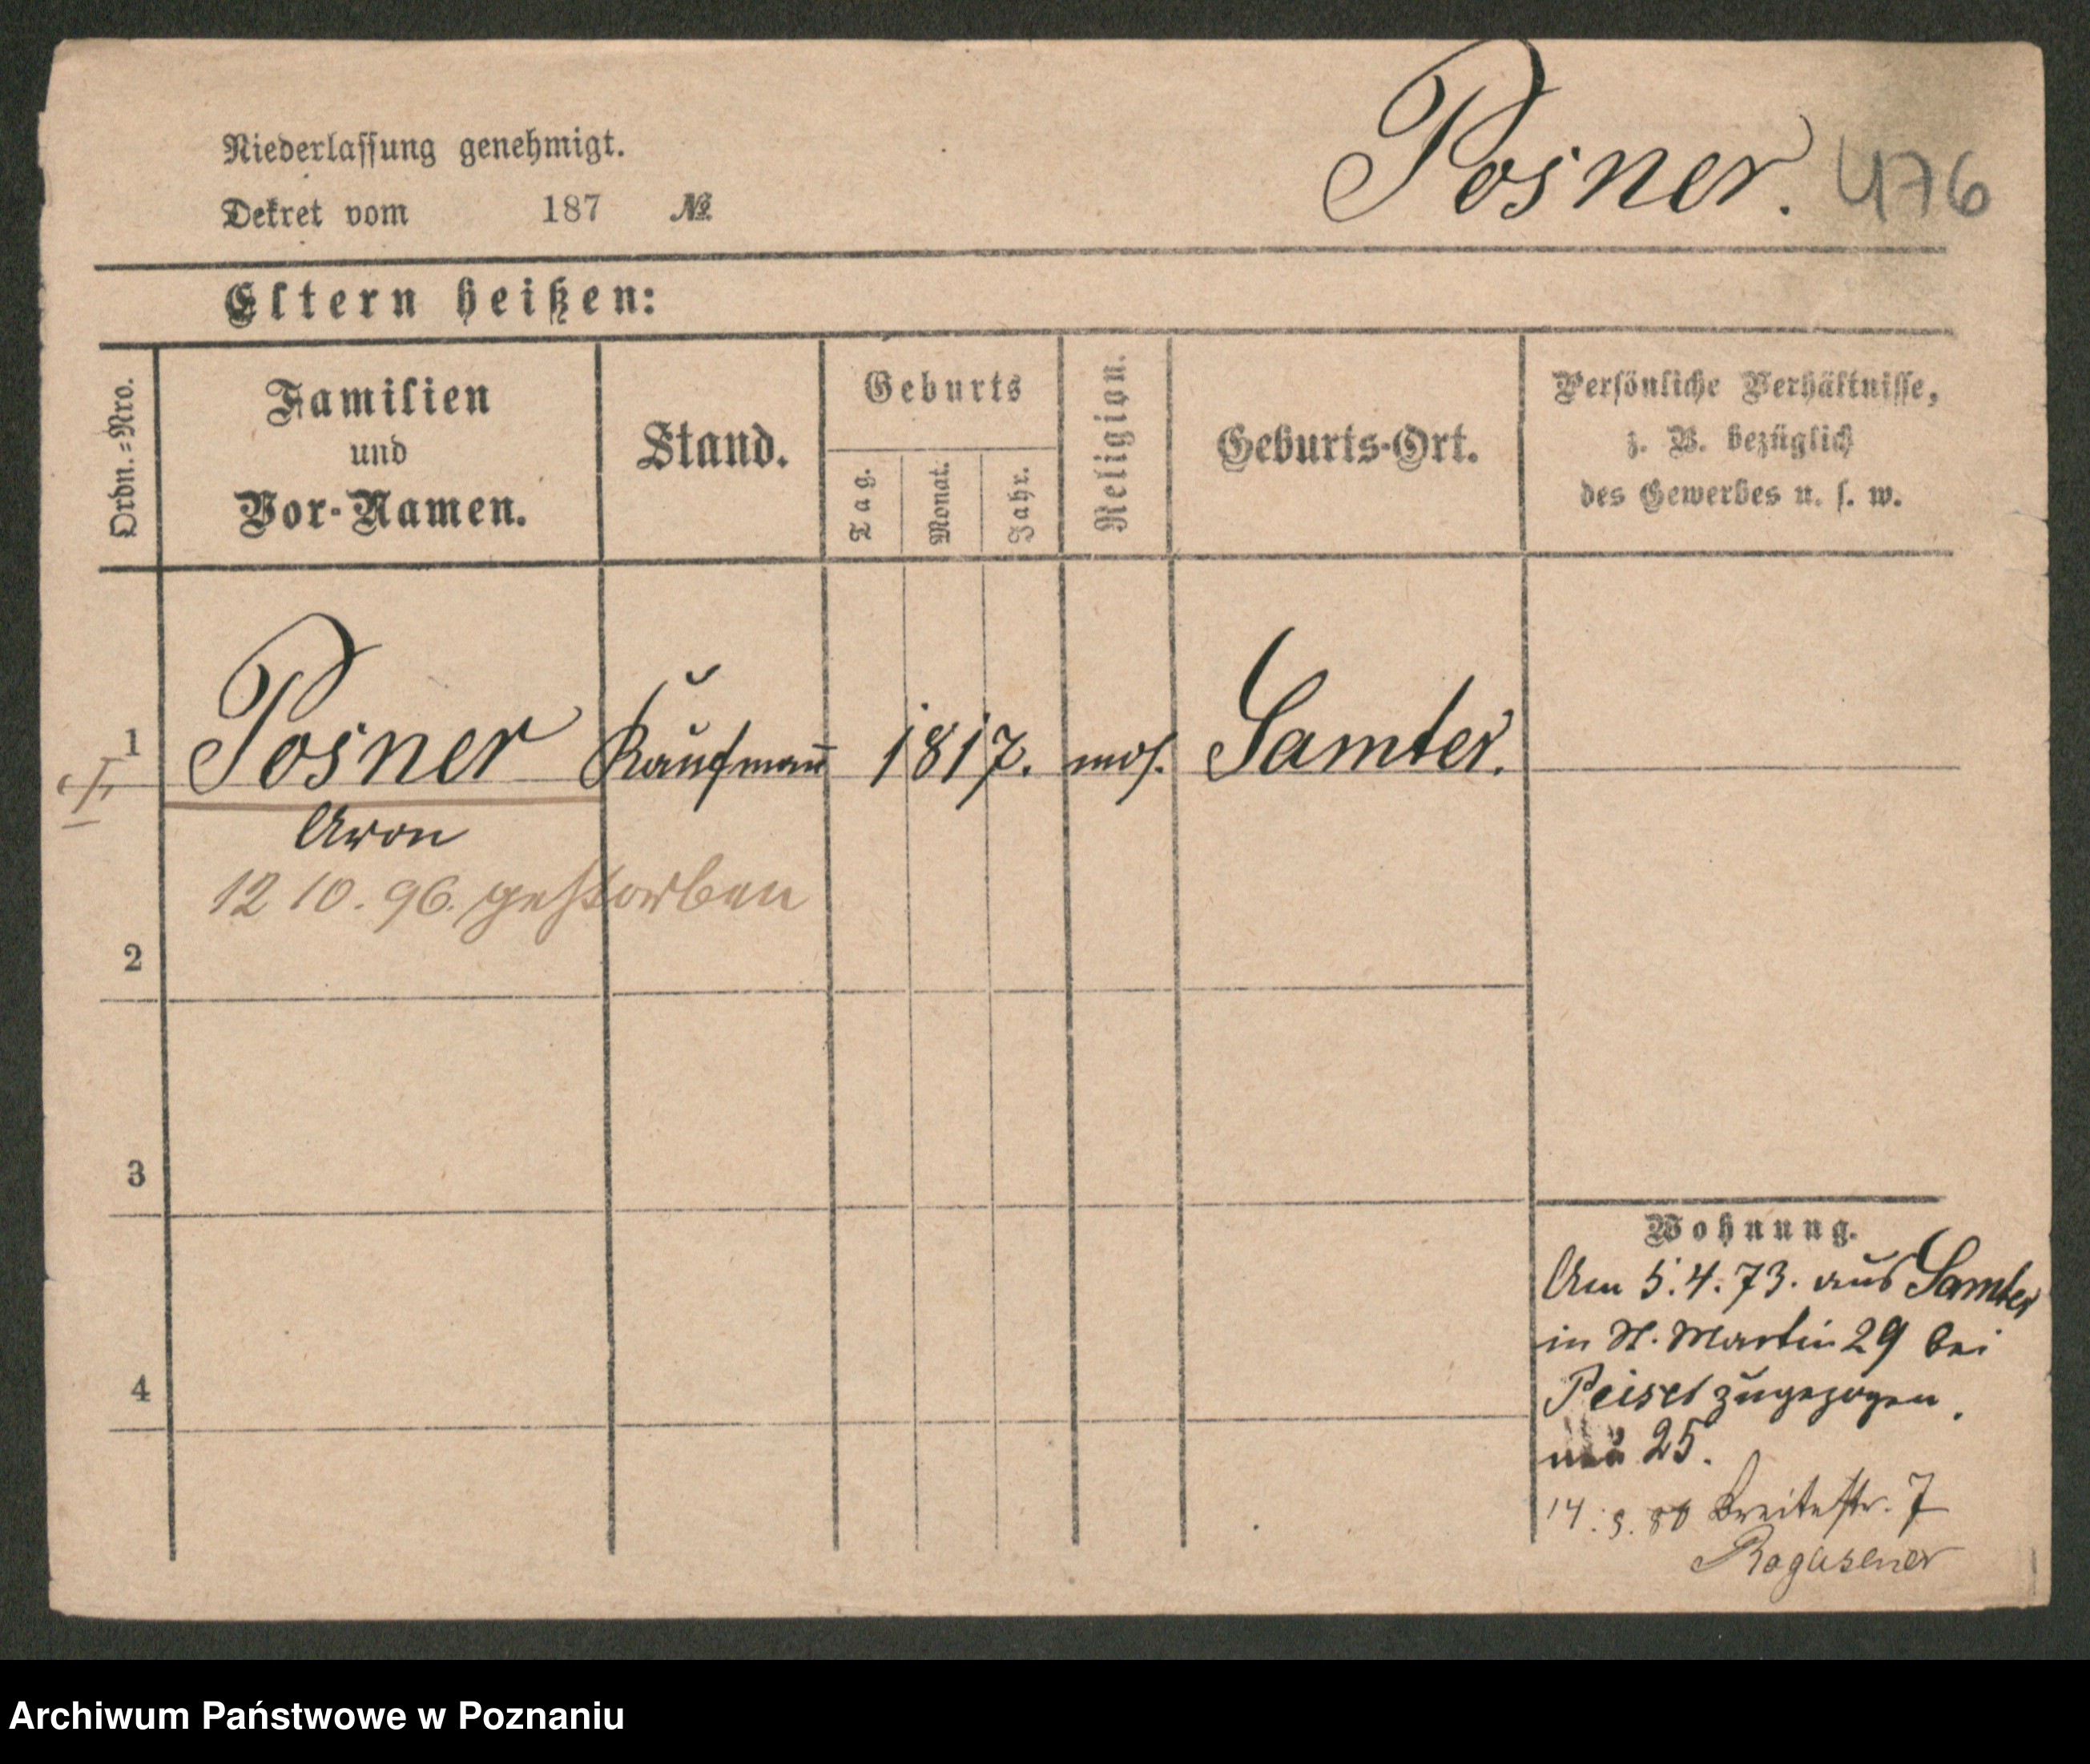 Niederlassung genehmigt.
Dekret vom 187 №
Posner. 476
Eltern heißen:
Ordn.=Nro.
Familien
und
Vor-Namen.
Stand.
Geburts
Tag.
Monat.
Jahr.
Religion.
Geburts-Ort.
Persönliche Verhältnisse,
z. B. bezüglich
des Gewerbes u. s. w.
1 Posner Kaufmañ 1817. mos. Samter.
Aron
12 10. 96. gestorben
2
3
4
Wohnung.
Am 5.4.73. aus Samter
in St. Martin 29 bei
Peiser zugezogen.
25.
14. Breitestr. 7
Rogasener
Archiwum Państwowe w Poznaniu